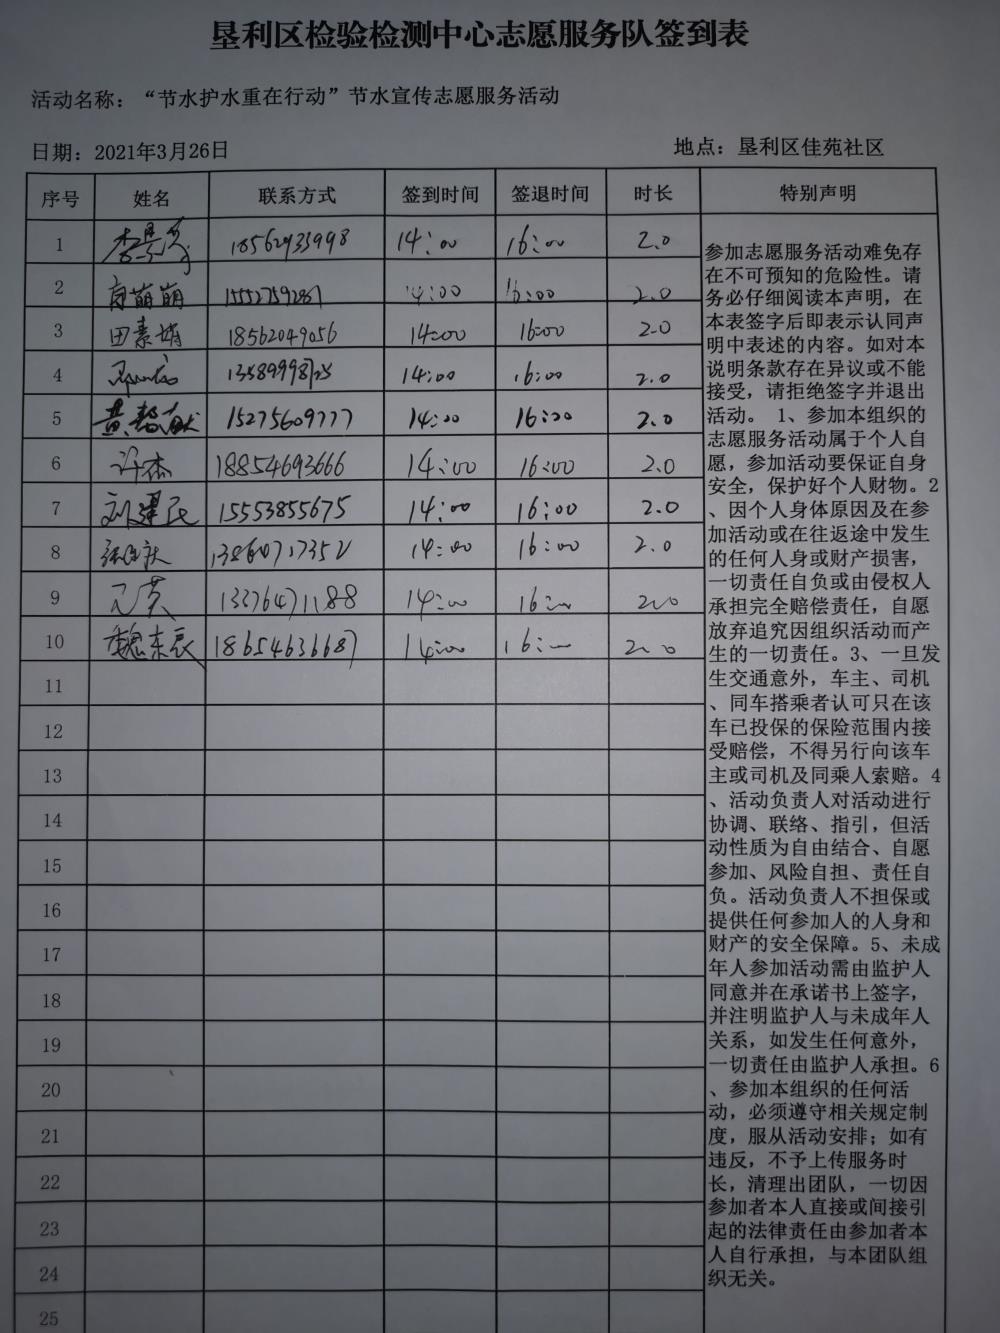 垦利区检验检测中心志愿服务队签到表
活动名称：“节水护水重在行动”节水宣传志愿服务活动
日期：2021年3月26日 地点：垦利区佳苑社区
序号 姓名 联系方式 签到时间 签退时间 时长 特别声明
1 18562933998 14:00 16:00 2.0
2 萌萌 14:00 16:00 2.0
3 田素娟 18562049056 14:00 16:00 2.0
4 14:00 16:00 2.0
5 黄 15275609777 14:00 16:00 2.0
6 许杰 18854693666 14:00 16:00 2.0
7 刘建民 15553855675 14:00 16:00 2.0
8 14:00 16:00 2.0
9 14:00 16:00 2.0
10 魏东辰 14:00 16:00 2.0
11
12
13
14
15
16
17
18
19
20
21
22
23
24
25
参加志愿服务活动难免存
在不可预知的危险性。请
务必仔细阅读本声明，在
本表签字后即表示认同声
明中表述的内容。如对本
说明条款存在异议或不能
接受，请拒绝签字并退出
活动。 1、参加本组织的
志愿服务活动属于个人自
愿，参加活动要保证自身
安全，保护好个人财物。2
、因个人身体原因及在参
加活动或在往返途中发生
的任何人身或财产损害，
一切责任自负或由侵权人
承担完全赔偿责任，自愿
放弃追究因组织活动而产
生的一切责任。3、一旦发
生交通意外，车主、司机
、同车搭乘者认可只在该
车已投保的保险范围内接
受赔偿，不得另行向该车
主或司机及同乘人索赔。4
、活动负责人对活动进行
协调、联络、指引，但活
动性质为自由结合、自愿
参加、风险自担、责任自
负。活动负责人不担保或
提供任何参加人的人身和
财产的安全保障。5、未成
年人参加活动需由监护人
同意并在承诺书上签字，
并注明监护人与未成年人
关系，如发生任何意外，
一切责任由监护人承担。6
、参加本组织的任何活
动，必须遵守相关规定制
度，服从活动安排；如有
违反，不予上传服务时
长，清理出团队，一切因
参加者本人直接或间接引
起的法律责任由参加者本
人自行承担，与本团队组
织无关。